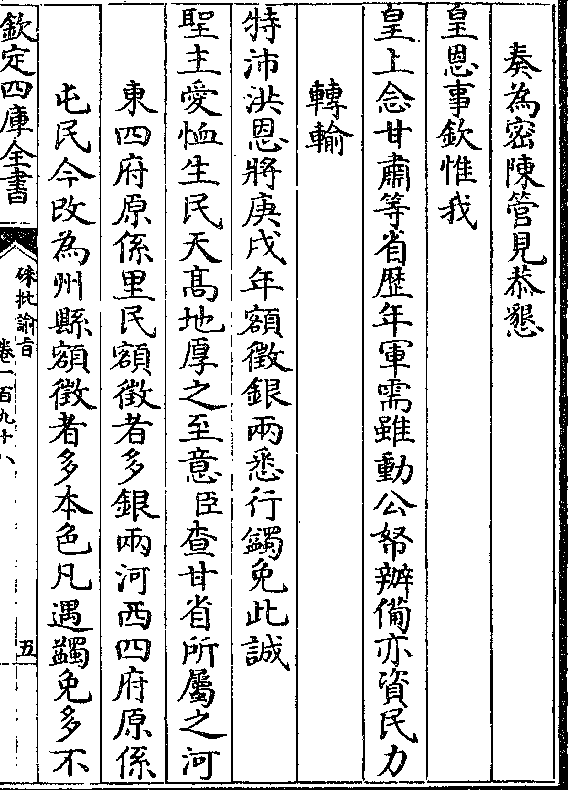 奏為密陳管見恭懇
皇恩事欽惟我
皇上念甘肅等省歴年軍需雖動公帑辦備亦資民力
轉輸
特沛洪恩將庚戌年額徵銀兩悉行蠲免此誠
聖主愛恤生民天髙地厚之至意臣查甘省所屬之河
東四府原係里民額徵者多銀兩河西四府原係
屯民今改為州縣額徵者多本色凡遇蠲免多不
欽定四庫全書
硃批諭旨
卷一百九十八
五